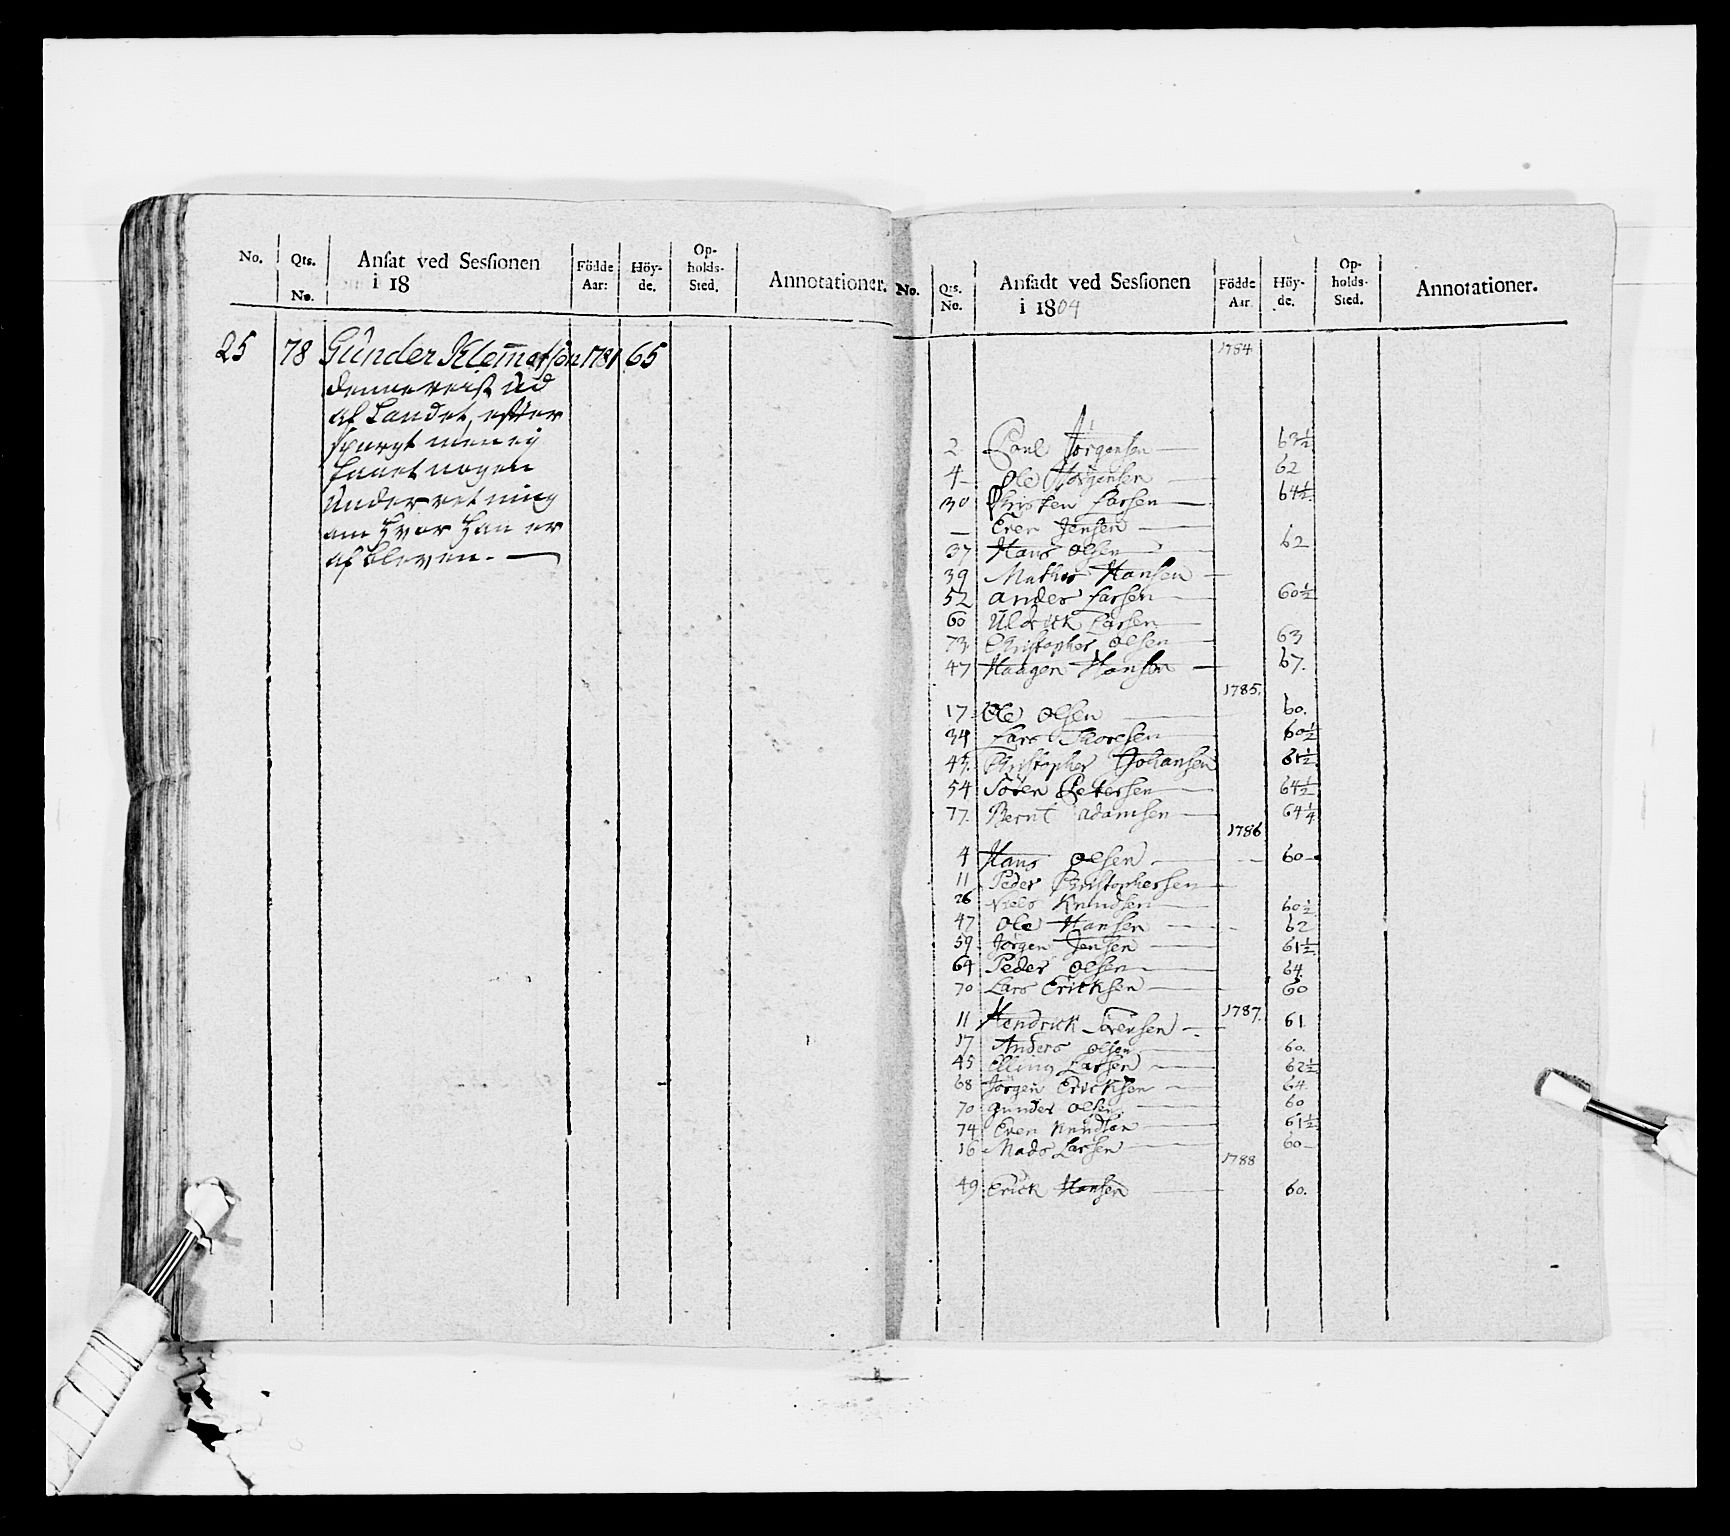 No. Qts. No. Ansat ved Sessionen i 18 Födde Aar: Höy-de. Op-holds-Sted. Annotationer.
25 78 Gunder Klemetsøn 1781 65
denne reist ud
af Landet, efter
spurgt men ey
faaet nogen
Underretning
om hvor han er
afbleven. —
No. Qts. No. Ansadt ved Sessionen i 1804 Födde Aar. Höy-de. Op-holds-Sted. Annotationer.
1784
2 Poul Jörgensen — 63½
4 — Ole Jörgensen — 62
30 Christen Larsen — 64½
— Even Jensen —
37 Hans Olsen — 62
39 Mathis Hansen —
52 Anders Larsen — 60½
60 Uldrick Larsen —
73 Christopher Olsen — 63
47 Haagen Hansen — 67.
1785.
17 Ole Olsen — 60.
34 Lars Thoresen 60½
45. Christopher Johansen 61½
54 Sören Petersen — 64½
77. Bernt Adamsen — 64¼
1786
4 Hans Olsen — 60 —
11 Peder Christophersen —
26 Niels Knudsen — 60½
47 Ole Hansen — 62
59 Jörgen Jensen — 61½
64 Peder Olsen — 64.
70 Lars Ericksen — 60
1787.
11 Hendrick Sörensen — 61
17 Anders Olsen 60.
45 Elling Larsen — 62½
68 Jörgen Ericksen — 64
70 Gunder Olsen — 60
74 Even Knudsen — 61½
16 Mads Larsen — 60 —
1788
49 Erick Hansen — 60.